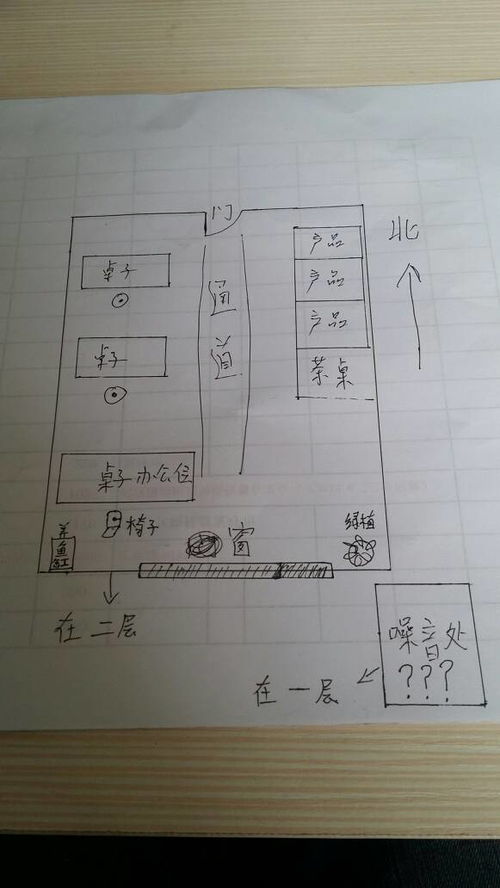 门
北
产品
桌子
产品
通
产品
道
桌子
茶桌
桌子 办公位
养鱼缸
椅子
窗
绿植
在二层
噪音处
???
在一层